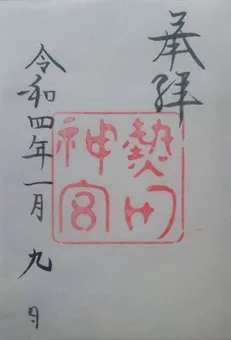 奉拝
熱田
神宮
令和四年一月九日